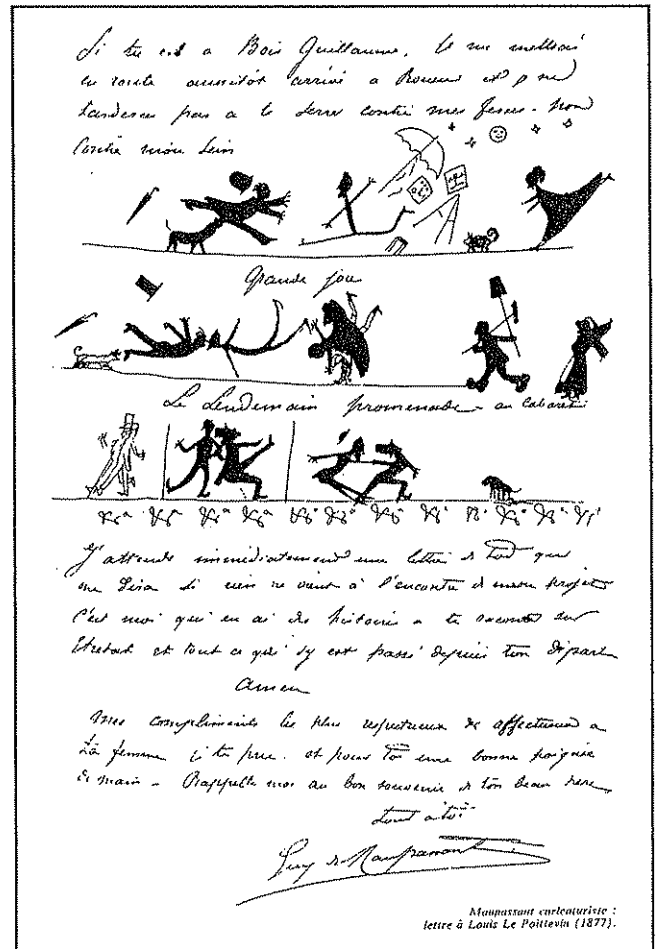 Si tu es à Bois Guillaume, je me mettrai
en route aussitôt arrivé à Rouen et ne
tarderai pas à te serrer contre mes fesses - non
contre mon sein
Grande joie
Le Lendemain promenade - au cabaret
J'attends immédiatement une lettre de toi qui
me dira si rien ne vient à l'encontre de mon projet
C'est moi qui en ai des histoires à te raconter sur
Etretat et tout ce qui s'y est passé depuis ton départ
Amen
Mes compliments les plus respectueux & affectueux à
ta femme je te prie. et pour toi une bonne poignée
de main - Rappelle moi au bon souvenir de ton beau père
tout à toi
Guy de Maupassant
Maupassant caricaturiste :
lettre à Louis Le Poittevin (1877).